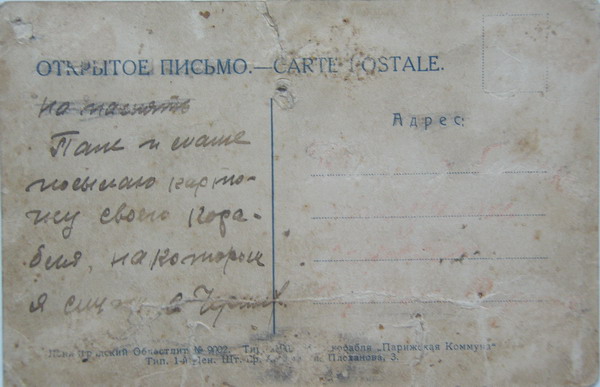 ОТКРЫТОЕ ПИСЬМО.—CARTE POSTALE.
на память
Адрес:
Папе и маме
посылаю карто-
чку своего кора-
бля, на котором
я служу в
Областлит № 9002. корабля „Парижская Коммуна“
Тип. Плеханова, 3.